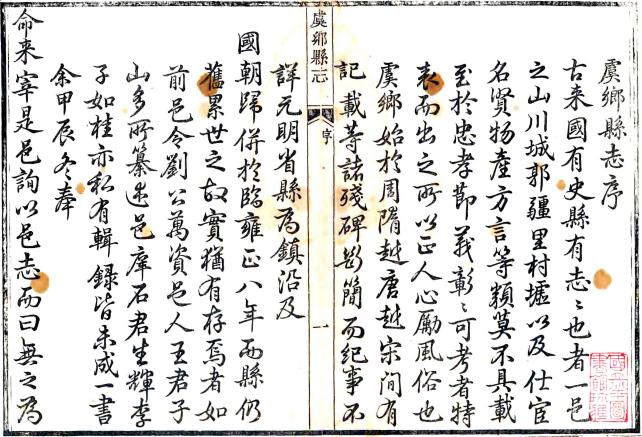 虞鄉縣志序
古来國有史縣有志〻也者一邑
之山川城郭疆里村墟以及仕宦
名賢物產方言等類莫不具載
至於忠孝節義彰〻可考者特
表而出之所以正人心勵風俗也
虞鄉始於周隋越唐越宋間有
記載等諸殘碑斷簡而紀事不
虞鄉縣志
序
一
詳元明省縣為鎮沿及
國朝歸併於臨雍正八年兩縣仍
舊累世之故實猶有存焉者如
前邑令劉公萬資邑人王君子
山多所纂述邑庠石君生輝李
子如桂亦私有輯録皆未成一書
余甲辰冬奉
命来宰是邑詢以邑志而曰無之為